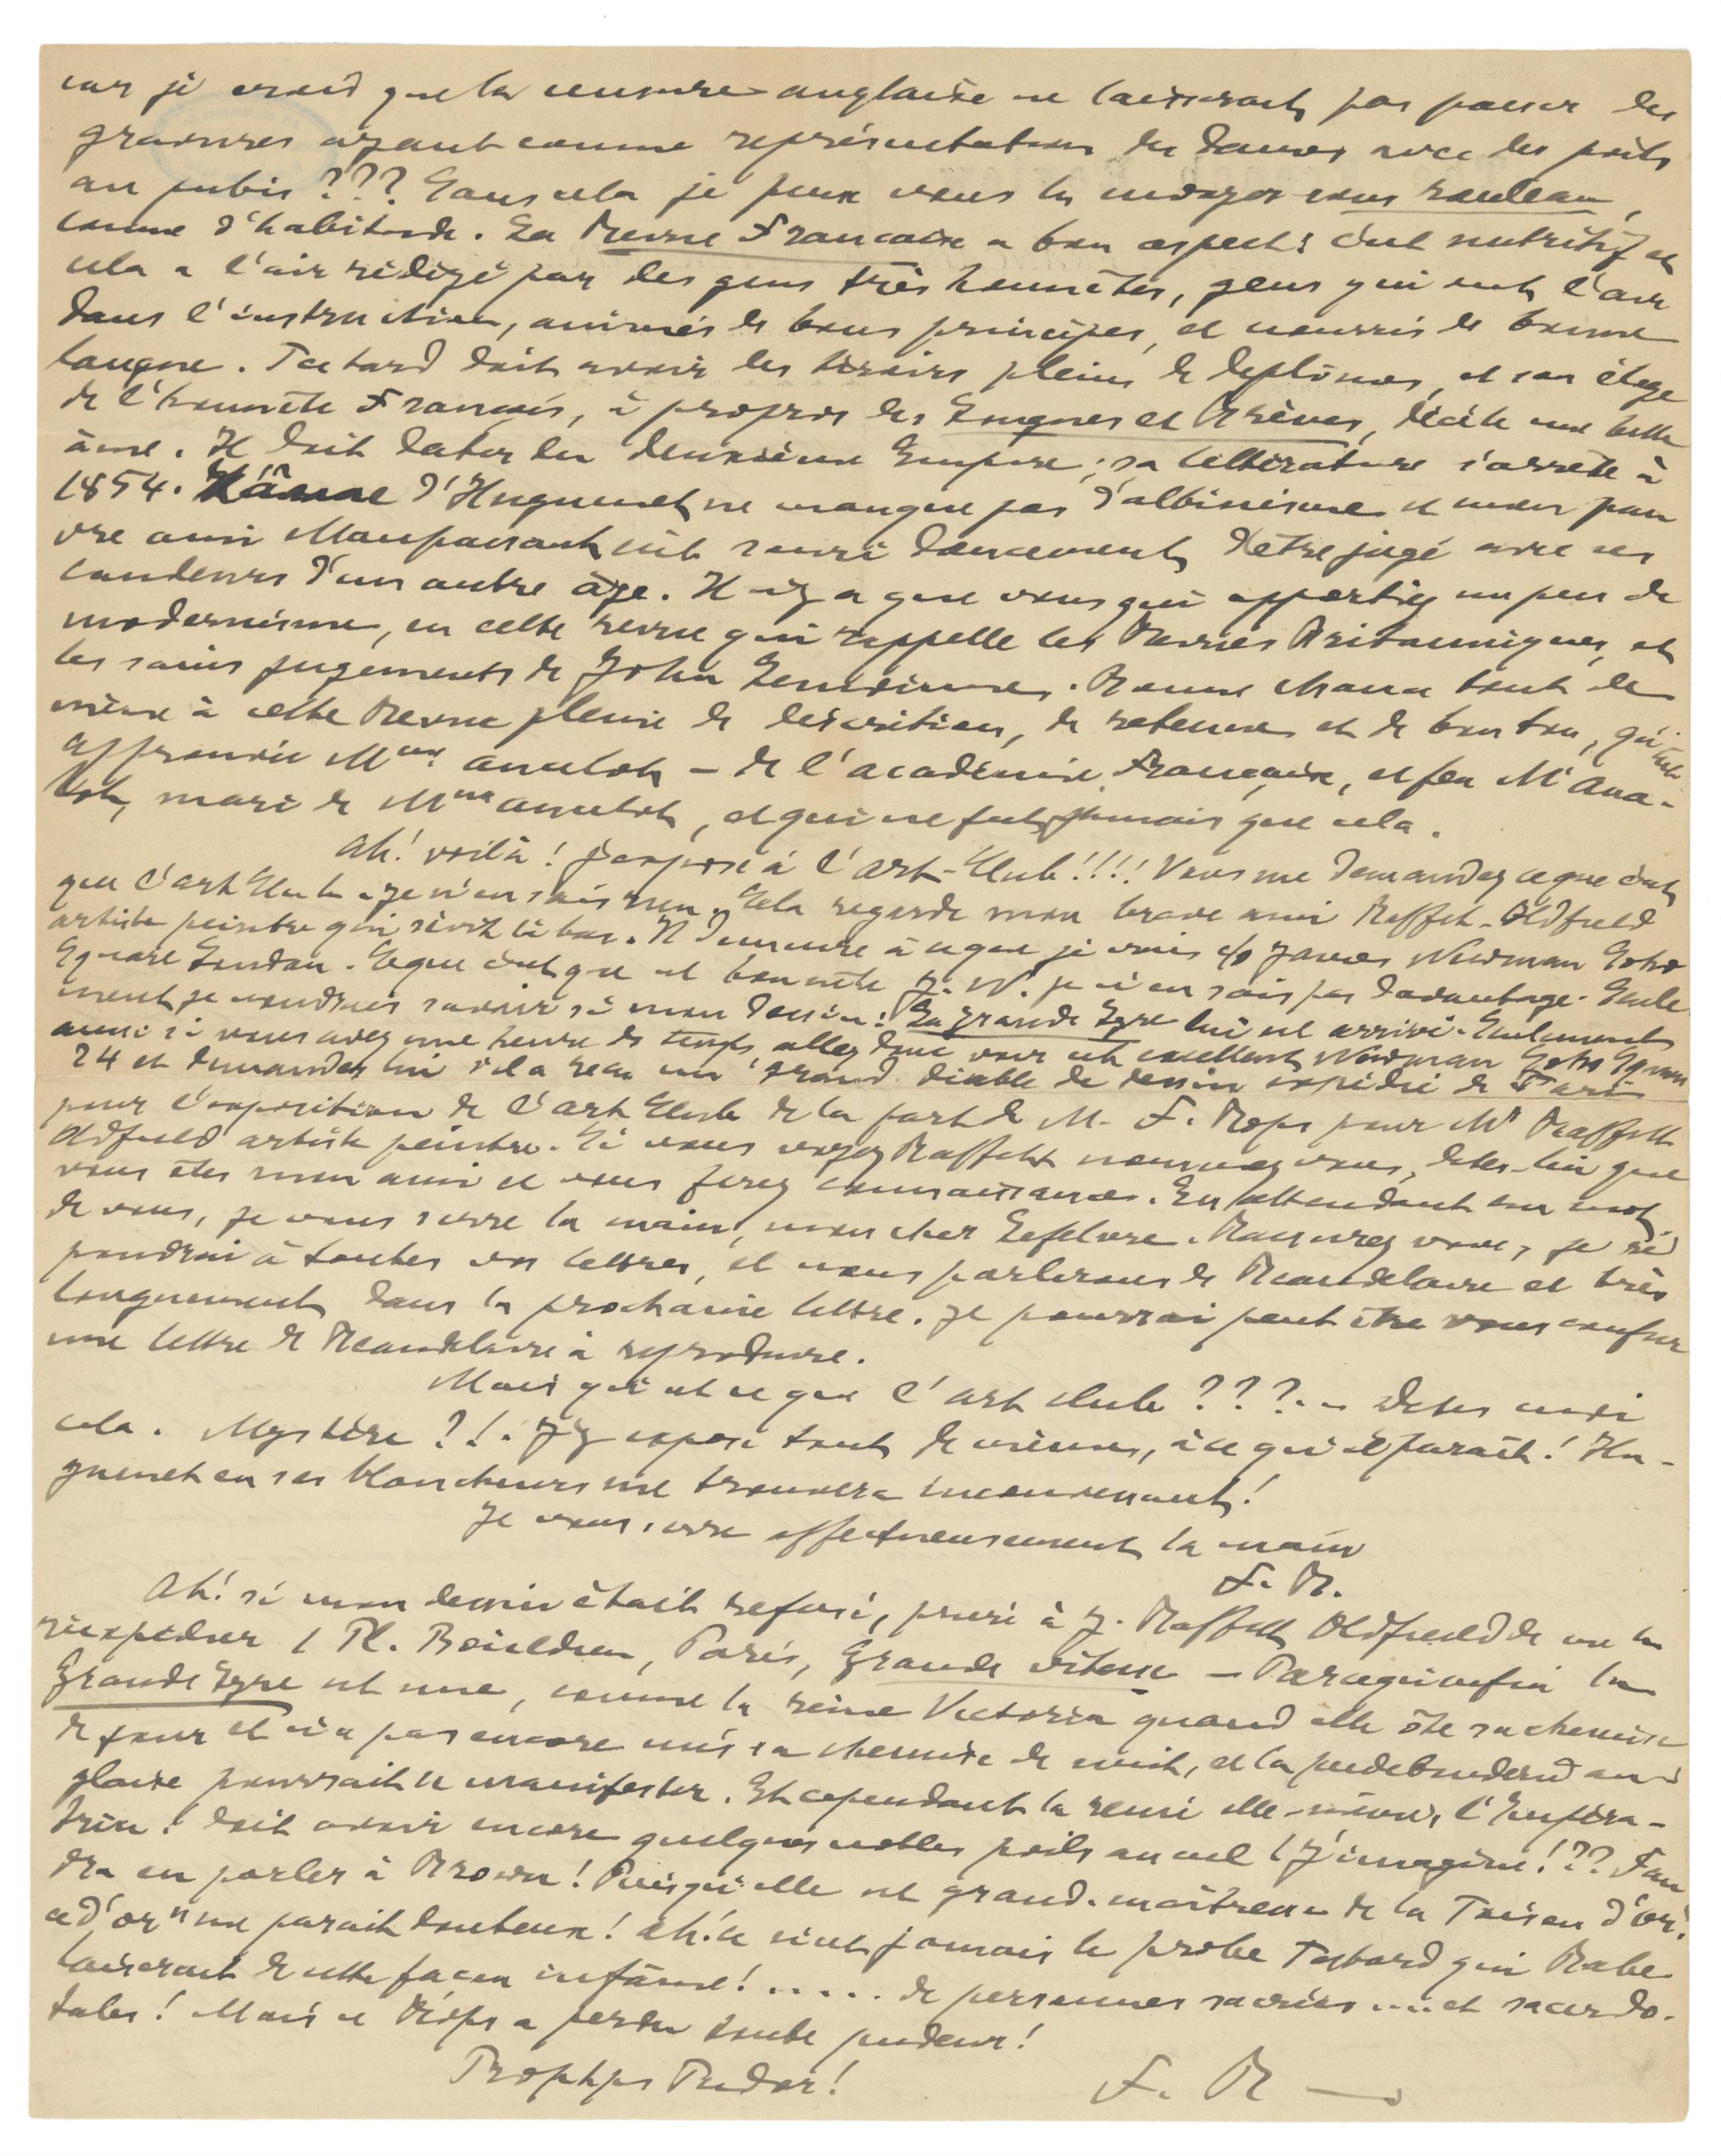 car je crains que la censure anglaise ne laisserait pas passer des
gravures ayant comme représentations des dames avec des poils
au pubis ??? Sans cela je peux vous les envoyer sous rouleau,
comme d'habitude. La Revue Française a bon aspect: c'est nutritif et
cela a l'air rédigé par des gens très honnêtes, gens qui ont l'air
dans l'instruction, animés de bons principes, et nourris de bonne
langue. Tastard doit avoir les tiroirs pleins de diplômes, et son éloge
de l'honnête Français, à propos des Longues et Brèves, décèle une belle
âme. Il doit dater du deuxième Empire; sa littérature s'arrête à
1854. L'âme d'Huguenet ne manque pas d'albinisme et mon pau
vre ami Maupassant eût souri doucement d'être jugé avec ces
candeurs d'un autre âge. Il n'y a que vous qui apportiez un peu de
modernisme, en cette revue qui rappelle les Revues Britanniques, et
les sains jugements de John Lemoinne. Bonne chance tout de
même à cette Revue pleine de discrétion, de retenue et de bon ton, qu'eut
approuvée Mme Ancelot – de l'académie Française, et feu Mr Ance-
lot, mari de Mme Ancelot, et qui ne fut jamais que cela.
Ah! voilà! J'expose à l'Art-Club!!!! Vous me demandez ce que c'est
que l'Art Club – je n'en sais rien. Cela regarde mon brave ami Raffet-Oldfield
artiste peintre qui sévit là bas. Il demeure à ce que je crois c/o James Newman Soho
Square London. Ce que c'est que cet honnête J. N. je n'en sais pas davantage. Seule
ment je voudrais savoir si mon dessin: La Grande Lyre lui est arrivé. Seulement
aussi si vous avez une heure de temps, allez donc voir cet excellent Newman Soho Square
24 et demandez lui s'il a reçu un grand diable de dessin expédié de Paris
pour l'exposition de l'Art Club de la part de M. F. Rops pour Mr Raffett
Oldfield artiste peintre. Si vous voyez Raffett nommez vous, dites-lui que
vous êtes mon ami et vous ferez connaissance. En attendant un mot
de vous, je vous serre la main, mon cher Lefebvre. Rassurez vous, je ré
pondrai à toutes vos lettres, et nous parlerons de Beaudelaire et très
longuement dans la prochaine lettre. Je pourrai peut être vous confier
une lettre de Beaudelaire à reproduire.
Mais qu'est ce que l'art club ???... Dites moi
cela. Mystère ?!. J'y expose tout de même, à ce qu'il paraît! Hu-
guenet en ses blancheurs me trouvera inconvenant!
Je vous serre affectueusement la main
F. R.
Ah! si mon dessin était refusé, prière à J. Raffett Oldfield de me le
réexpédier 1 Pl. Boieldieu, Paris, Grande vitesse – Parcequ'enfin la
Grande Lyre est nue, comme la reine Victoria quand elle ôte sa chemise
de jour et n'a pas encore mis sa chemise de nuit, et la pudibonderie an
glaise pourrait se manifester. Et cependant la reine elle-même, l'Impéra-
trice! doit avoir encore quelques nobles poils au cul! J'imagine!?? Fau
dra en parler à Brown! Puisqu'elle est grand-maîtresse de la Toison d'or!
ce "d'or" me parait douteux! Ah! ce n'est jamais le probe Tastard qui Rabe
laiserait de cette façon infâme!..... de personnes sacrées.... et sacerdo-
tales! Mais ce Rops a perdu toute pudeur!
F. R.